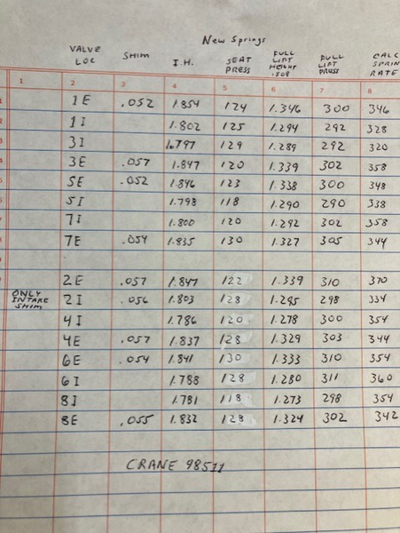 New Springs
VALVE LOC SHIM I.H. SEAT PRESS FULL LIFT HEIGHT .508 FULL LIFT PRESS CALC SPRIN RATE
1 2 3 4 5 6 7 8
1E .052 1.854 124 1.346 300 346
1I 1.802 125 1.294 292 328
3I 1.797 129 1.289 292 320
3E .057 1.847 120 1.339 302 358
5E .052 1.846 123 1.338 300 348
5I 1.798 118 1.290 290 338
7I 1.800 120 1.292 302 358
7E .054 1.835 130 1.327 305 344
2E .057 1.847 122 1.339 310 370
ONLY INTAKE SHIM 2I .056 1.803 128 1.295 298 334
4I 1.786 120 1.278 300 354
4E .057 1.837 128 1.329 303 344
6E .054 1.841 130 1.333 310 354
6I 1.788 128 1.280 311 360
8I 1.781 118 1.273 298 354
8E .055 1.832 128 1.324 302 342
CRANE 98511